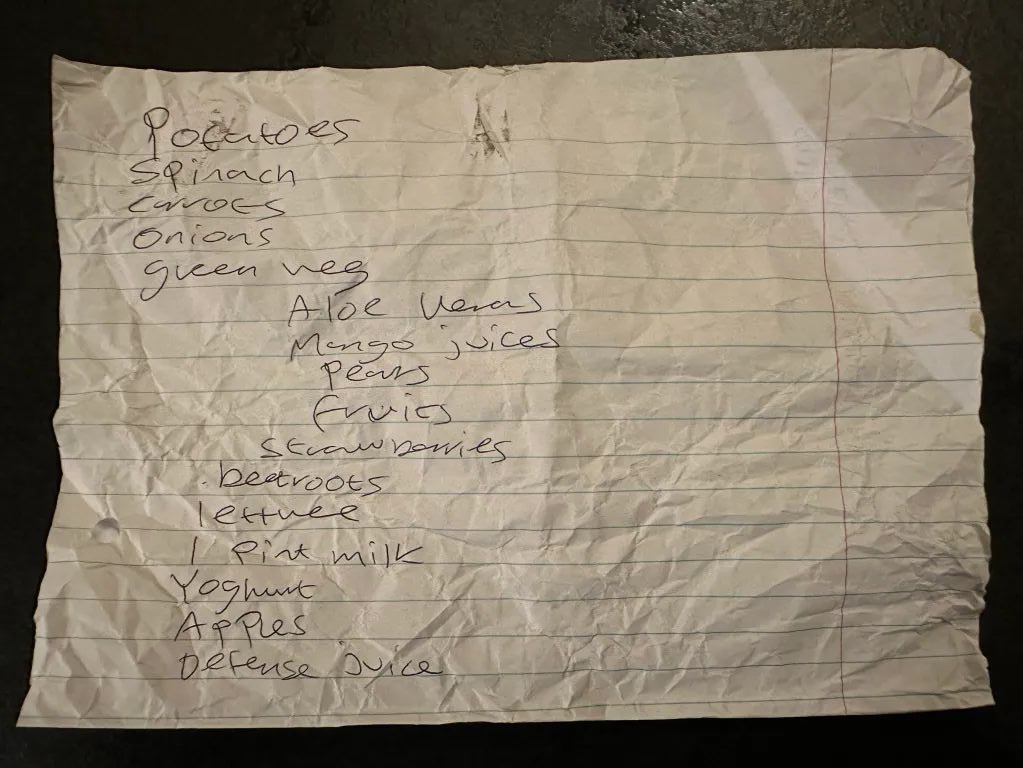 Potatoes
Spinach
carrots
onions
green veg
Aloe Veras
Mango juices
Pears
fruits
strawberries
beetroots
lettuce
1 Pint milk
Yoghurt
Apples
Defense juice